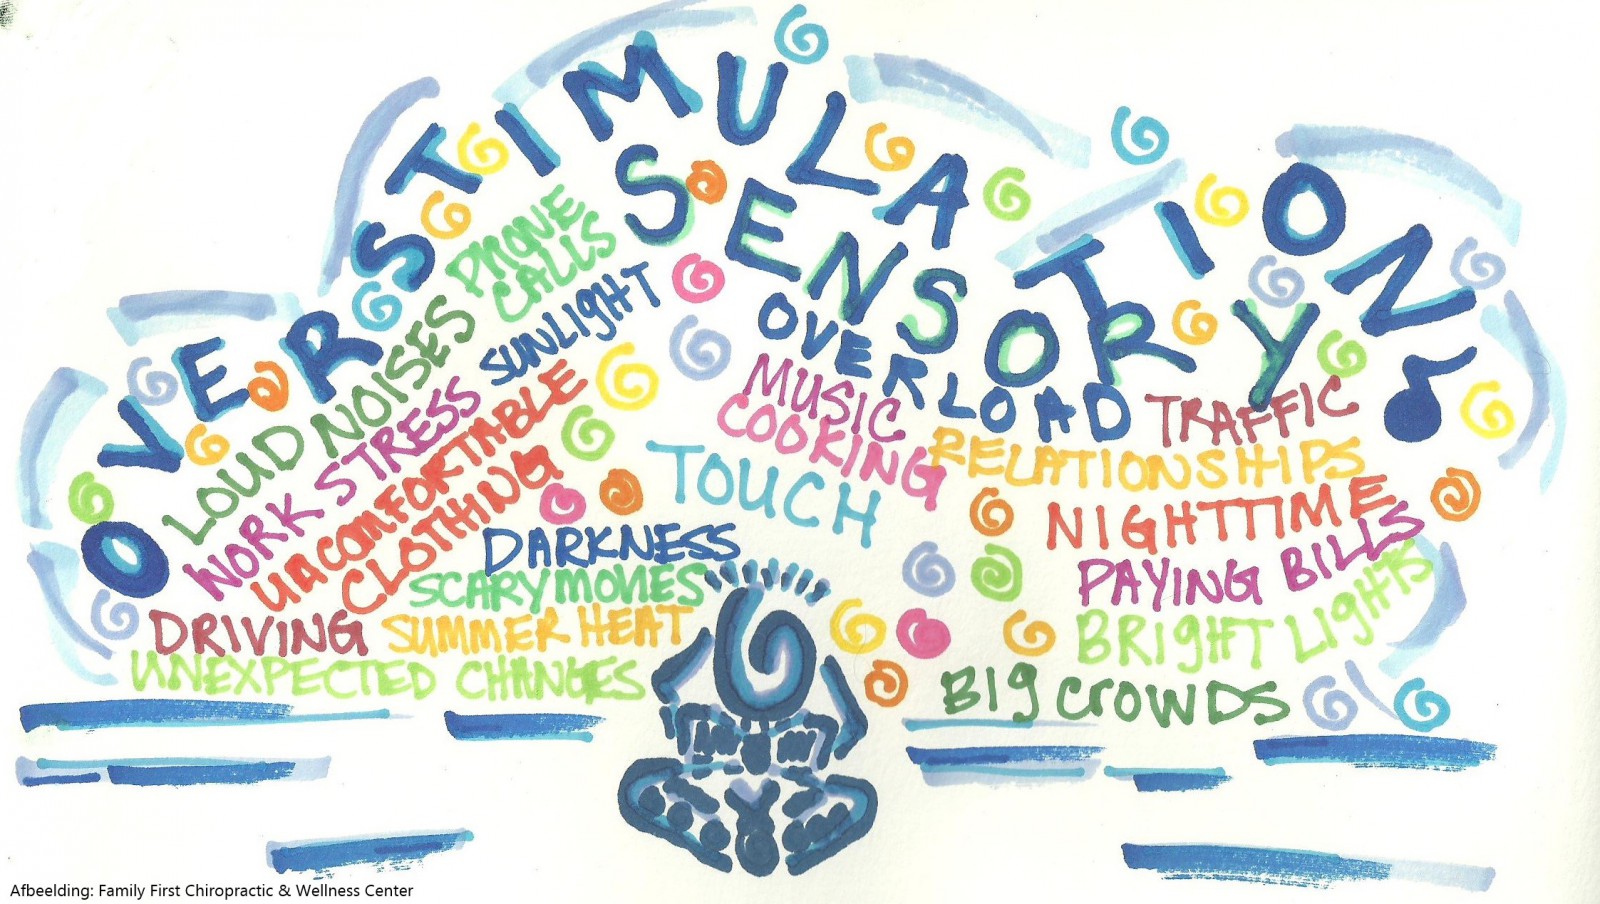 OVERSTIMULATION
SENSORY
OVERLOAD
PHONE
CALLS
SUNLIGHT
LOUD NOISES
WORK STRESS
UNCOMFORTABLE
CLOTHING
DARKNESS
SCARY MOVIES
DRIVING
SUMMER HEAT
UNEXPECTED CHANGES
TOUCH
MUSIC
COOKING
TRAFFIC
RELATIONSHIPS
NIGHTTIME
PAYING BILLS
BRIGHT LIGHTS
BIG CROWDS
Afbeelding: Family First Chiropractic & Wellness Center